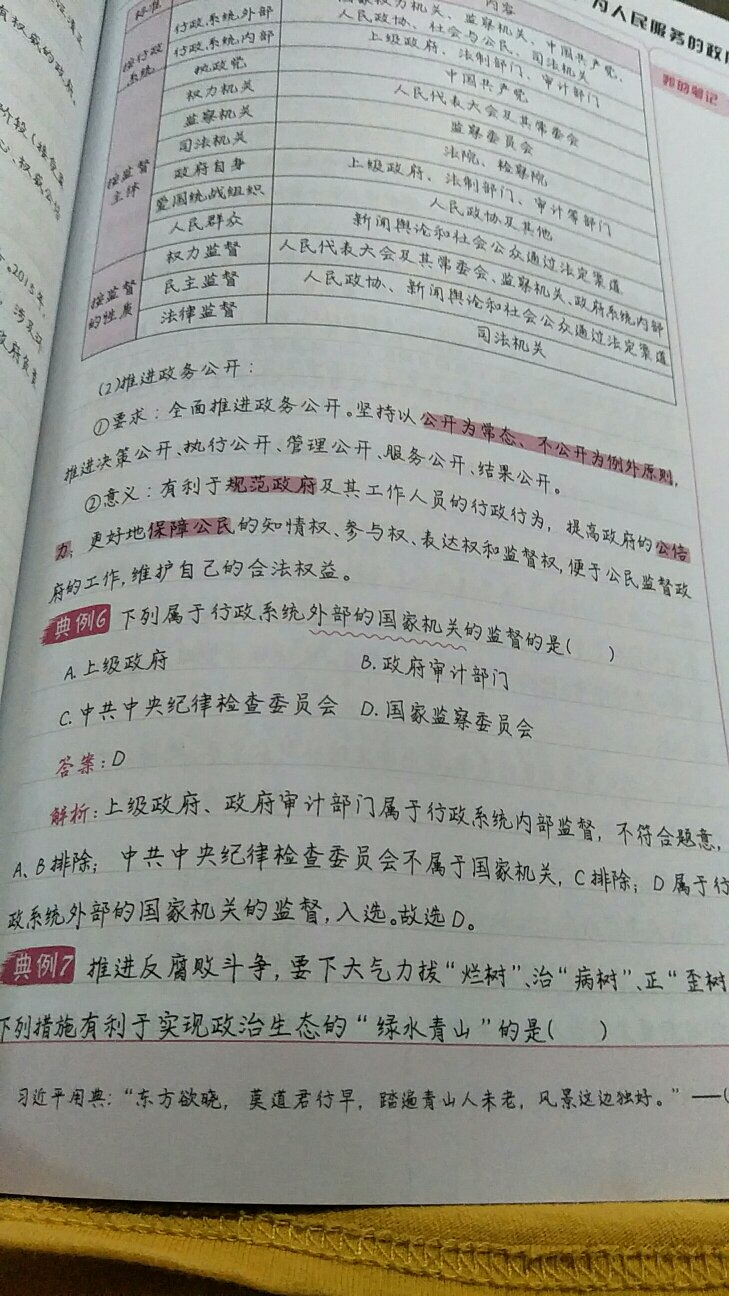 为人民服务的政府
我的笔记
标准 内容
按行政系统 行政系统外部 国家权力机关、监察机关、中国共产党、
人民政协、社会与公民、司法机关
行政系统内部 上级政府、法制部门、审计部门
按监督主体 执政党 中国共产党
权力机关 人民代表大会及其常委会
监察机关 监察委员会
司法机关 法院、检察院
政府自身 上级政府、法制部门、审计等部门
爱国统战组织 人民政协及其他
人民群众 新闻舆论和社会公众通过法定渠道
按监督的性质 权力监督 人民代表大会及其常委会、监察机关、政府系统内部
民主监督 人民政协、新闻舆论和社会公众通过法定渠道
法律监督 司法机关
(2)推进政务公开：
①要求：全面推进政务公开。坚持以公开为常态、不公开为例外原则,
推进决策公开、执行公开、管理公开、服务公开、结果公开。
②意义：有利于规范政府及其工作人员的行政行为，提高政府的公信
力；更好地保障公民的知情权、参与权、表达权和监督权,便于公民监督政
府的工作,维护自己的合法权益。
典例6 下列属于行政系统外部的国家机关的监督的是( )
A.上级政府 B.政府审计部门
C.中共中央纪律检查委员会 D.国家监察委员会
答案:D
解析:上级政府、政府审计部门属于行政系统内部监督，不符合题意,
A、B排除；中共中央纪律检查委员会不属于国家机关，C排除；D属于行
政系统外部的国家机关的监督,入选。故选D。
典例7 推进反腐败斗争,要下大气力拔“烂树”、治“病树”、正“歪树
下列措施有利于实现政治生态的“绿水青山”的是( )
习近平用典:“东方欲晓，莫道君行早，踏遍青山人未老，风景这边独好。”——